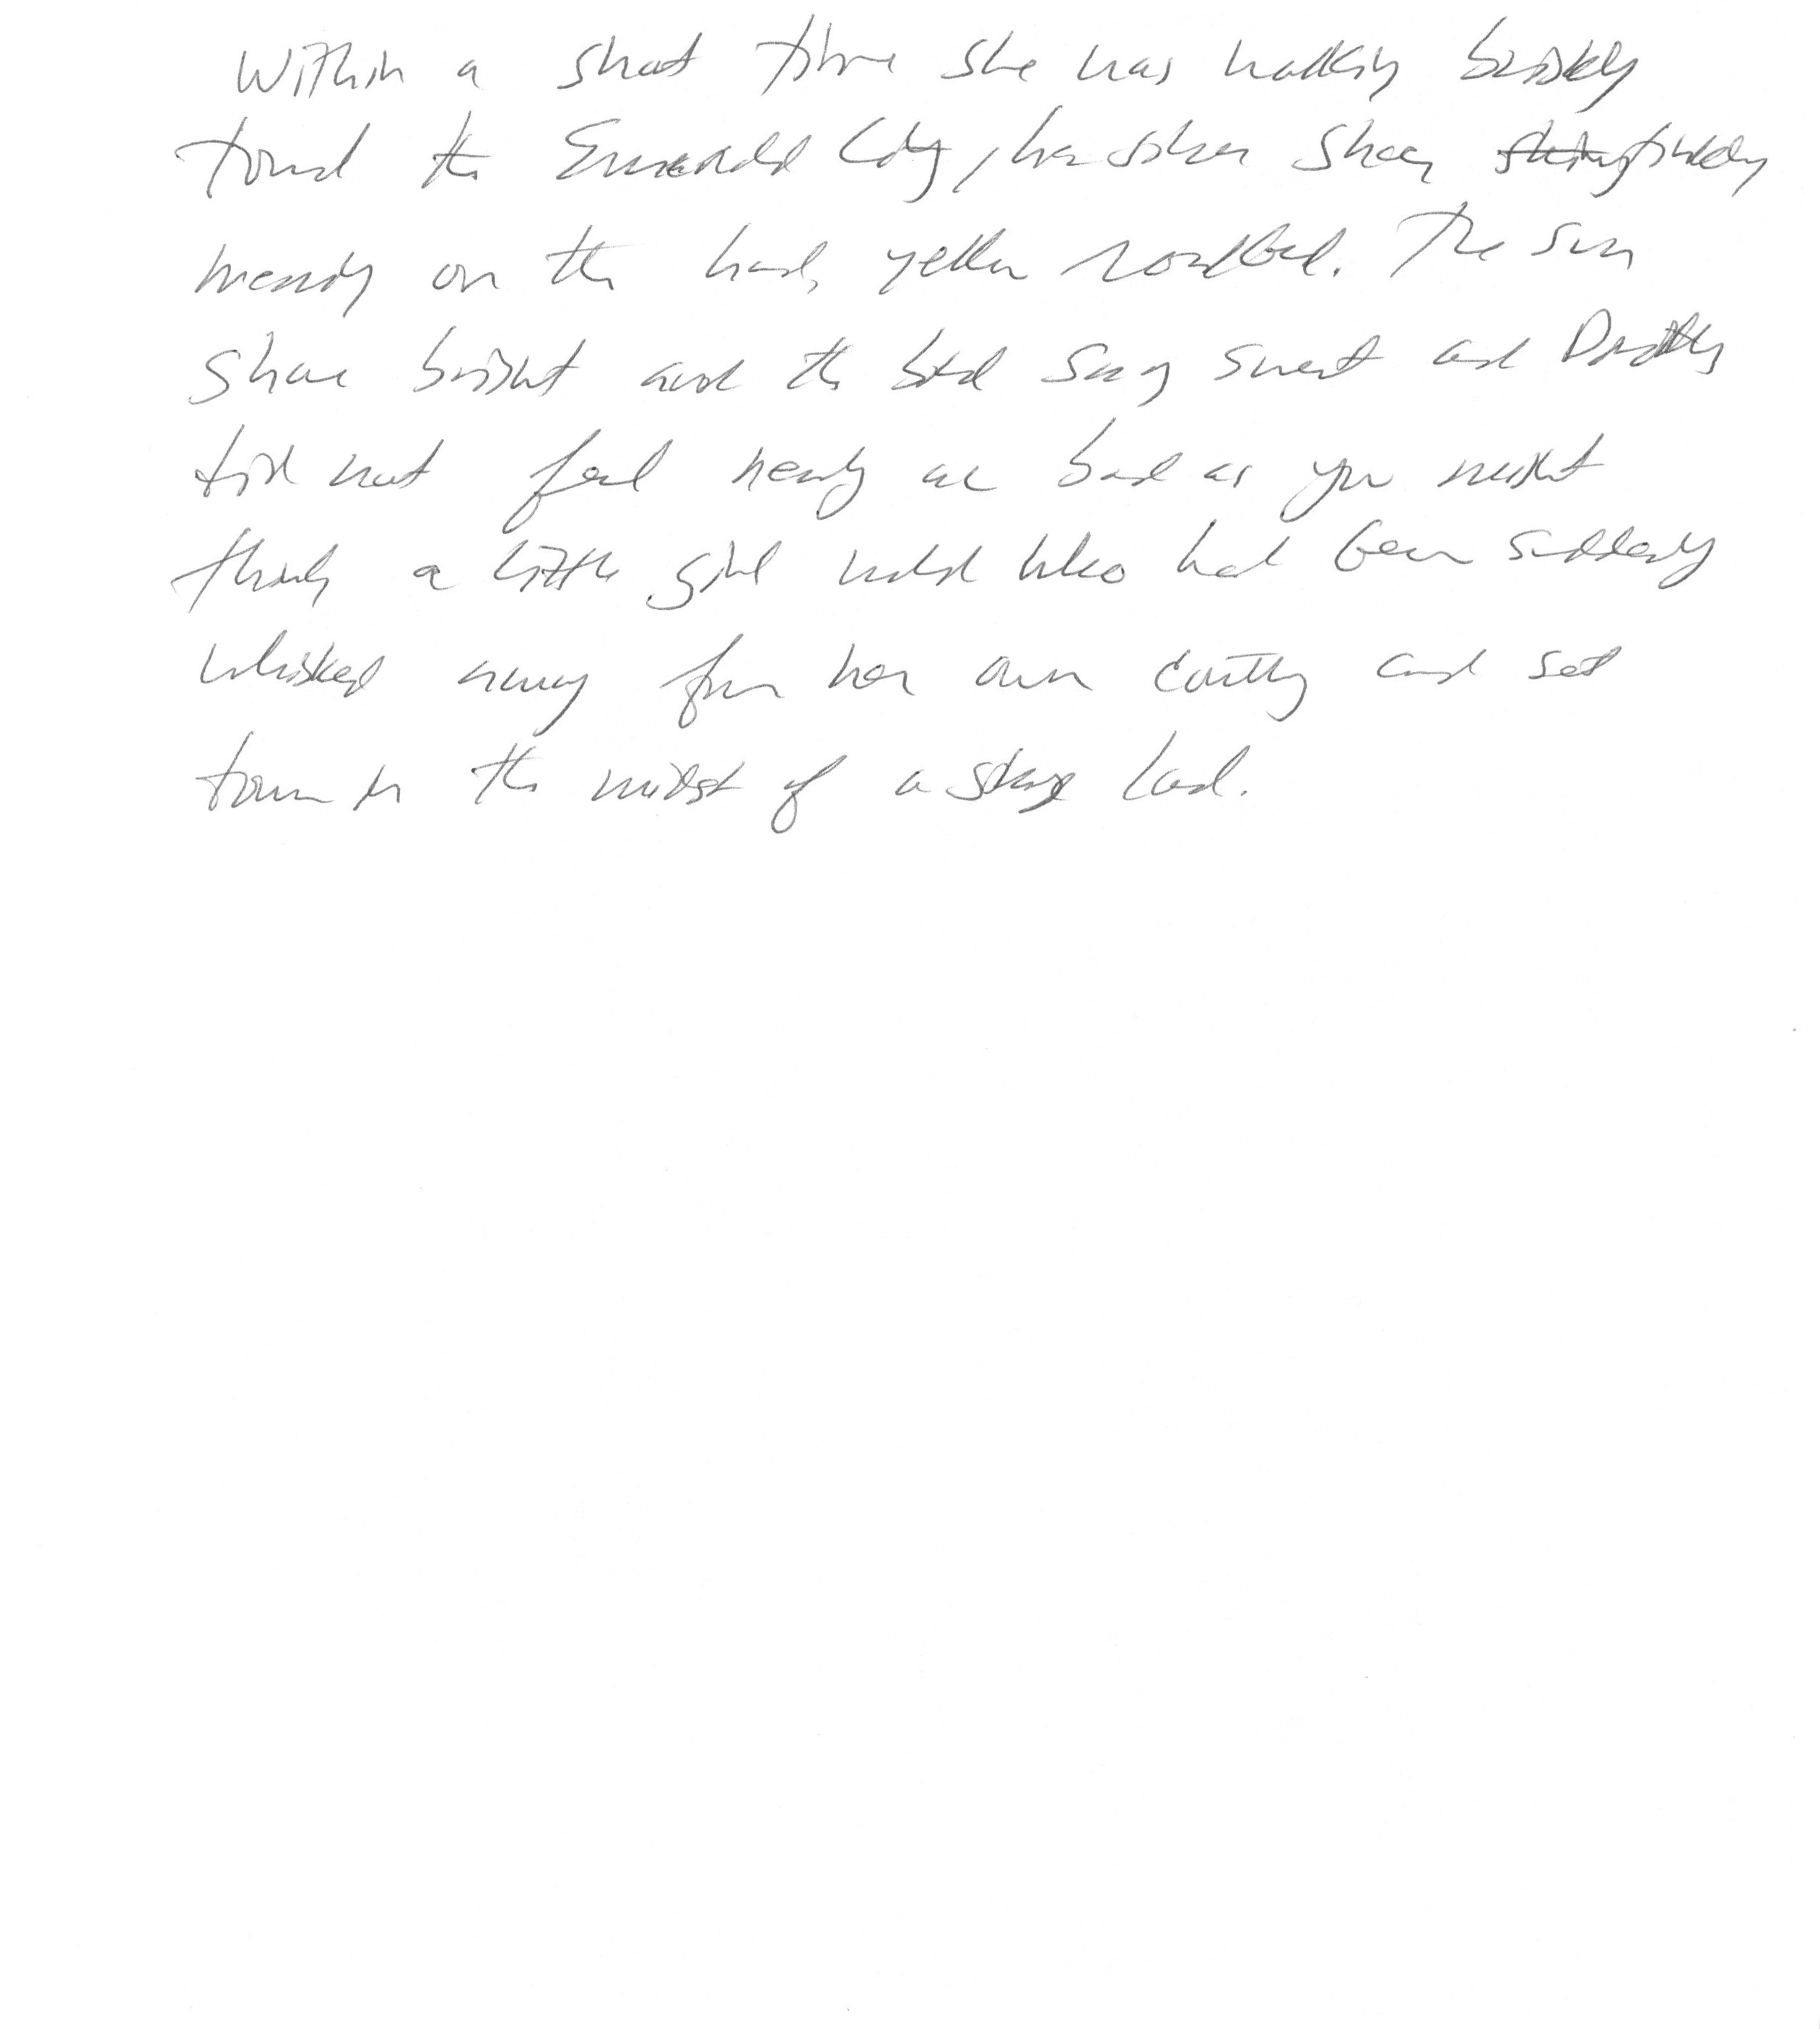 Within a short time she was walking briskly
toward the Emerald City, her silver shoes tinkling
merrily on the hard, yellow roadbed. The sun
shone bright and the birds sang sweet and Dorothy
did not feel nearly as bad as you might
think a little girl would who had been suddenly
whisked away from her own country and set
down in the midst of a strange land.